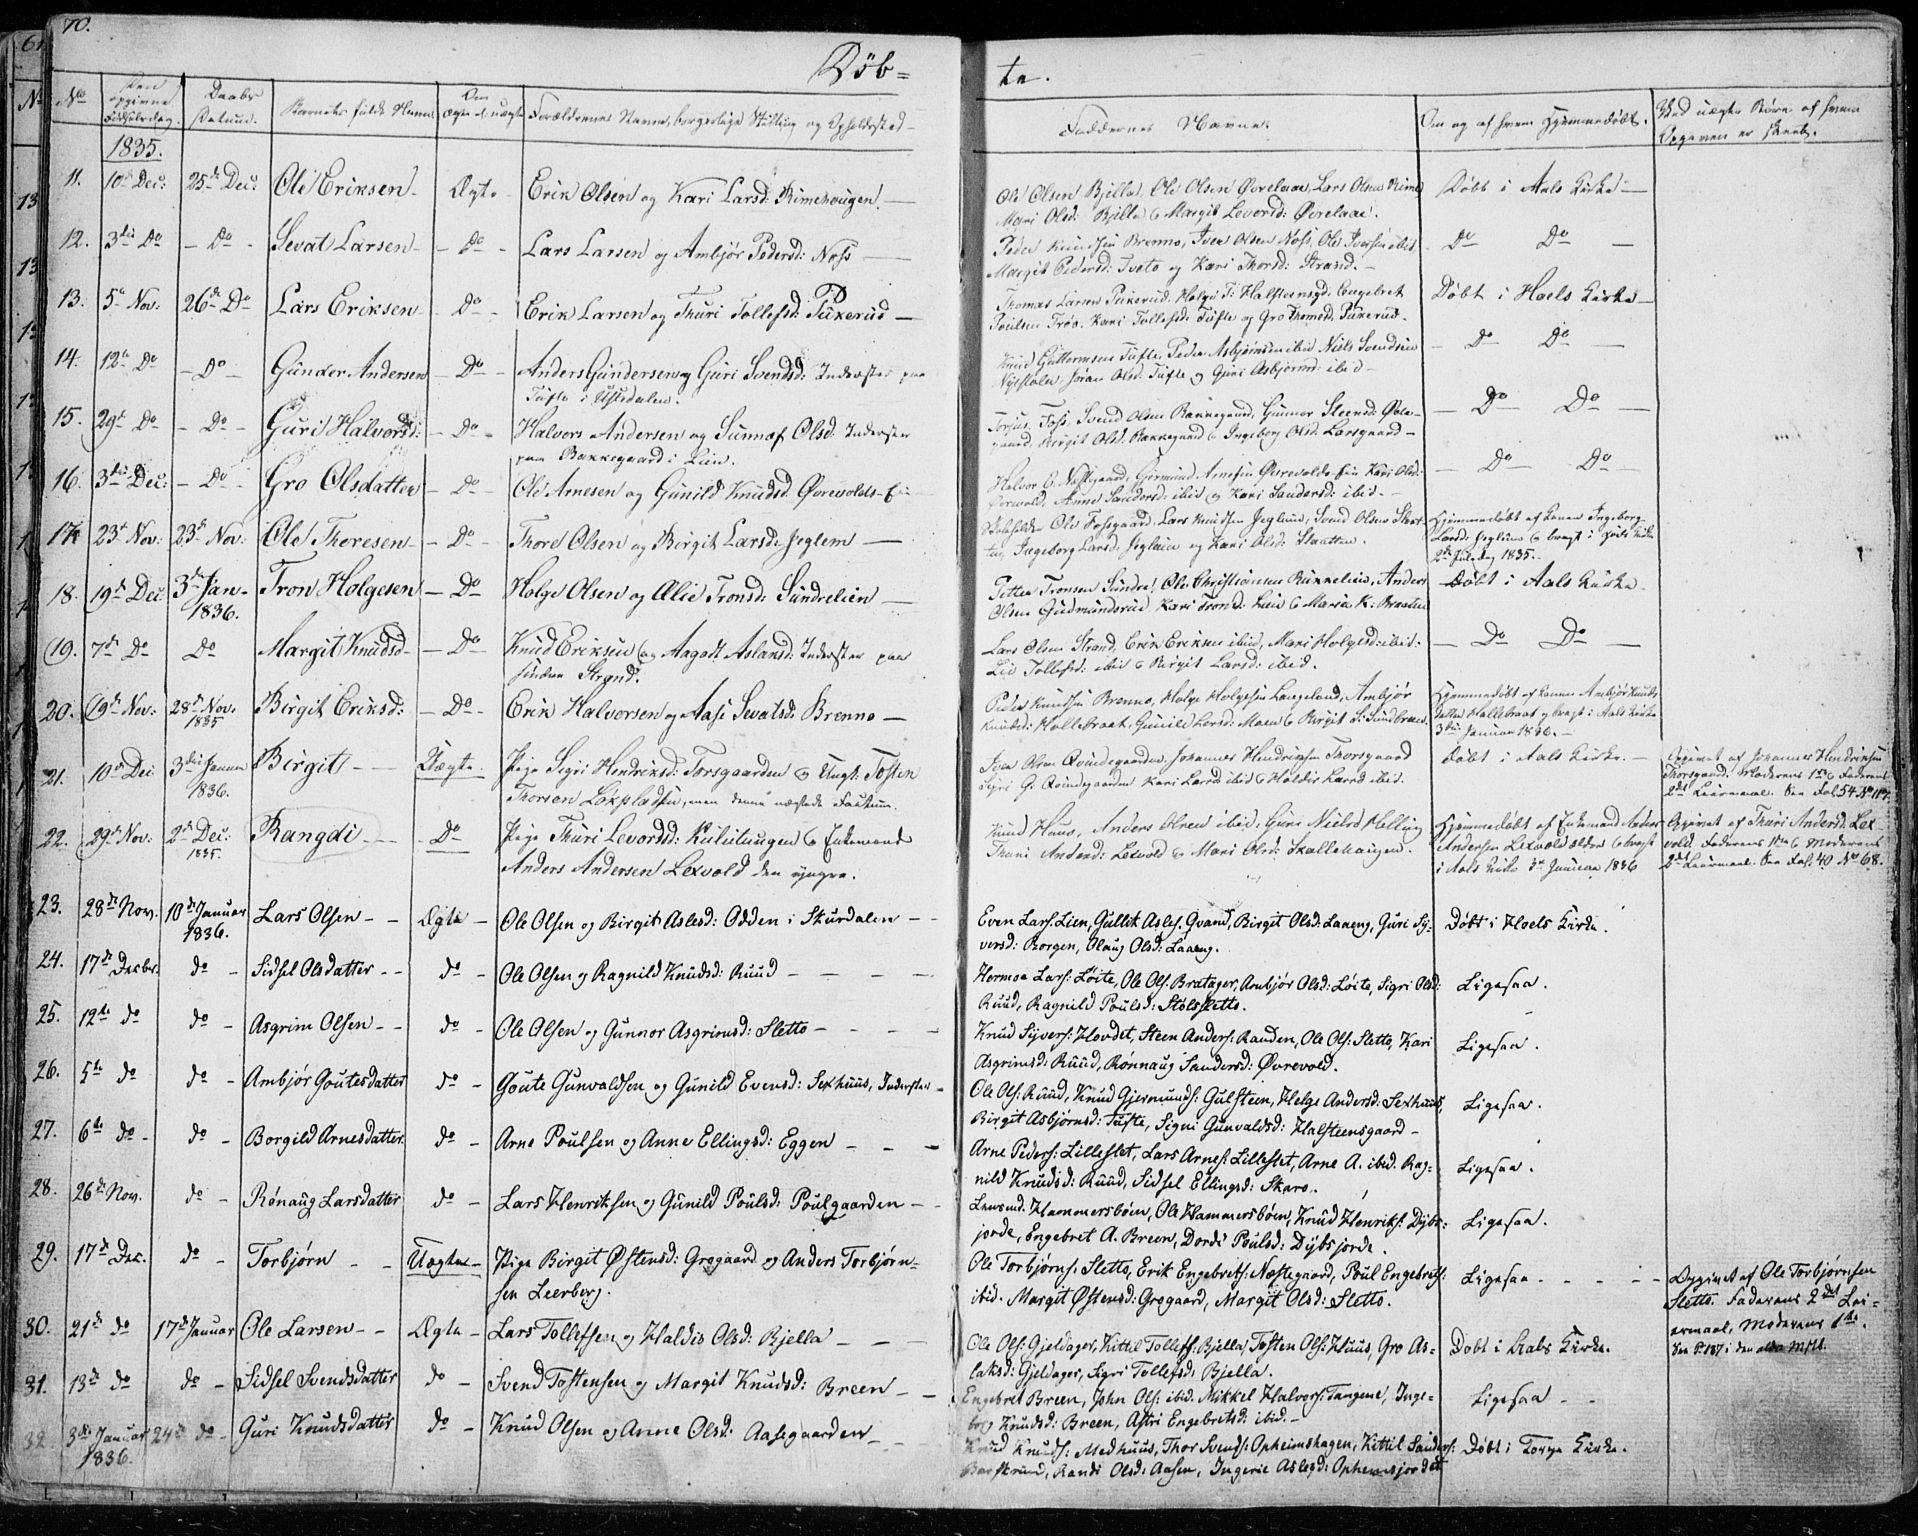 70.
Døb=
te.
No
Den opgivne Fødselsdag.
Daabs Datum.
Barnets fulde Navn
Om ægte el. uægte
Forældrenes Navne, borgerlige Stilling og Opholdssted
Faddernes Navne.
Om og af hvem Hjemmedøbt.
Ved uægte Børn af hvem Opgaven er skeet.
1835.
11. 10de Dec: 25de Dec: Ole Eriksen Ægte Erik Olsen og Kari Larsd: Rimehougen.
Ole Olsen Bjella, Ole Olsen Øvrelaae, Lars Olsen Rime, Døbt i Aals Kirke
Mari Olsd: Bjella & Margit Levorsd: Øvrelaae.
12. 3die Do Do Sevat Larsen Do Lars Larsen og Ambjør Pedersd: Noss
Peder Knudsen Brenno, Iver Olsen Noss, Ole Iversen ibid Do Do
Margit Pedersd: Tveto og Kari Thorsd: Strand.
13. 5te Nov. 26de Do Lars Eriksen Do Erik Larsen og Thuri Tollefsd: Pukerud
Thomas Larsen Pukerud, Helge T: Halsteensgd: Engebret Døbt i Hoels Kirke
Poulsen Trøo, Kari Tollefsd: Tufte og Gro Thomasd: Pukerud.
14. 12te Do Do Gunder Andersen Do Anders Gundersen og Guri Svendsd: Inderster paa
Tufte i Ustedalen.
Knud Guttormsen Tufte, Peder Asbjørnsen ibid Niels Svendsen Do Do
Nystølen Jøran Olsd: Tufte og Guri Asbjørnsd: ibid
15. 29de Do Do Guri Halvorsd: Do Halvor Andersen og Sunnøf Olsd: Inderster
paa Bakkegaard i Lien.
Torjus Foss, Svend Olsen Bakkegaard, Gunnor Steensd: Øvle- Do Do
gaard, Birgit Olsd: Bakkegaard & Ingeborg Olsd: Larsgaard
16. 3die Dec: Do Gro Olsdatter Do Ole Arnesen og Gunild Knudsd Øvrevolds-Eie
Halvor E. Nestegaard, Gjermund Arnesen Øvrevolds-Eie Kari Olsd: Do Do
Øvrevold, Anne Sandersd: ibid og Kari Sandersd: ibid.
17. 23de Nov: 23de Nov: Ole Thoresen Do Thore Olsen og Birgit Larsd: Jeglem
Ole Fossgaard, Lars Knudsen Jeglum, Svend Olsen Slaat- Hjemmedøbt af Konen Ingeborg
ten, Ingeborg Larsd: Jeglum og Kari Olsd: Slaatten. Larsd: Jeglum & bragt i Hoels Kirke
2den Juledag 1835.
18. 19de Dec 3die Jan- 1836. Tron Holgesen Do Holge Olsen og Ælie Tronsd: Sundrelien
Petter Tronsen Sundre, Ole Christiansen Rukkelien, Anders Døbt i Aals Kirke
Olsen Gudmundsrud Kari Tronsd: Lien & Maria K. Braaten
19. 7de Do Do Margit Knudsd Do Knud Eriksen og Aagodt Aslaksd: Inderster paa
søndre Strand.
Lars Olsen Strand, Erik Eriksen ibid, Mari Holgesd: ibid: Do Do
Liv Tollefsd: ibid & Birgit Larsd: ibid.
20. 19de Nov: 28de Nov. 1835 Birgit Eriksd: Do Erik Halvorsen og Aase Sevatsd: Brenno
Peder Knudsen Brenno, Holge Holgesen Langeland, Ambjør Hjemmedøbt af Konen Ambjør Knuds
Knudsd: Hallebraat, Gunild Larsd: Moen & Birgit S: Sundbraat datter Hallebraat og bragt i Aals Kirke
3die Januar 1836.
21. 10de Dec 3die Januar 1836. Birgit Uægte. Pige Sigri Hendriksd: Torsgaarden og Ungk: Tosten
Thorsen Løkpladsen, men denne nægtede Factum.
Iver Olsen Qvindegaarden, Johannes Hendriksen Thorsgaard Døbt i Aals Kirke. Opgivet af Johannes Hendriksen
Sigri G. Qvindegaarden Kari Larsd ibid & Haldis Larsd ibid. Thorsgaard. Moderens 1ste & Faderens
2det Leiermaal. See Fol. 54 No 114.
22. 29de Nov: 2den Dec: 1835. Rangdi Do Pige Thuri Levordsd: Kulutungen & Enkemand
Anders Andersen Lexvold den yngre.
Knud Huus, Anders Olsen ibid, Guri Nielsd Helling Hjemmedøbt af Enkemand Anders Opgivet af Thuri Andersd: Lex
Thuri Andersd: Lexvold & Mari Olsd: Skallehaugen. Andersen Lexvold ældre & bragt vold. Faderens 1ste & Moderens
i Aals Kirke 3die Januar 1836 2det Leiermaal. See Fol. 40 No 68.
23. 28de Nov. 10de Januar 1836. Lars Olsen Ægte Ole Olsen og Birgit Aslesd: Odden i Skurdalen
Even Lars: Lien, Gullik Asles. Qvand, Birgit Olsd: Laaeng, Guri Sy- Døbt i Hoels Kirke.
versd: Borgen, Olaug Olsd: Laaeng.
24. 17de Decbr. do Sidsel Olsdatter do Ole Olsen og Ragnild Knudsd: Ruud
Hermoe Lars: Løite, Ole Ols: Bratager, Ambjør Olsd: Løite, Sigri Olsd: Ligesaa.
Ruud, Ragnild Poulsd: Stølsletto.
25. 12te do do Asgrim Olsen do Ole Olsen og Gunnor Asgrimsd: Sletto
Knud Syvers: Hovdet, Steen Anders: Rauden, Ole Ols: Sletto, Kari Ligesaa.
Asgrimsd: Ruud, Rønnaug Sandersd: Øvrevold.
26. 5te do do Ambjør Goutesdatter do Goute Gunvaldsen og Gunild Evensd: Sexhuus, Inderster
Ole Ols: Ruud, Knud Gjermunds: Gulsteen, Helge Andersd: Sexhuus, Ligesaa.
Birgit Asbjørnsd: Tufte, Sigri Gunvaldsd: Halsteensgaard
27. 6te do do Borgild Arnesdatter do Arne Poulsen og Anne Ellingsd: Eggen
Arne Peders: Lilleslet, Lars Arnes: Lilleslet, Arne A. ibid. Rag- Ligesaa.
nild Knudsd: Ruud, Sidsel Ellingsd: Skaro.
28. 26de Nov. do Rønaug Larsdatter do Lars Henriksen og Gunild Poulsd: Poulgaarden
Hammersbøen, Ole Hammersbøen, Knud Henriks: Dybs- Ligesaa.
jorde, Engebret A. Breen, Dordi Poulsd: Dybsjorde.
29. 17de Dec. do Torbjørn Uægte Pige Birgit Østensd: Grøgaard og Anders Torbjørn=
sen Leerberg.
Ole Torbjørns: Sletto, Erik Engebrets: Nestegaard, Poul Engebrets: Ligesaa. Opgivet af Ole Torbjørnsen
ibid. Margit Østensd: Grøgaard, Margit Olsd: Sletto. Sletto. Faderens 2det Lei-
ermaal, Moderens 1ste.
See P. 187 i den ældre M.B.
30. 21de do 17de Januar Ole Larsen Ægte Lars Tollefsen og Haldis Olsd: Bjella
Ole Ols: Gjeldager, Kittil Tollefs: Bjella, Tosten Ols: Huus, Gro As- Døbt i Aals Kirke.
laksd: Gjeldager, Sigri Tollefsd: Bjella.
31. 13de do do Sidsel Svendsdatter do Svend Tostensen og Margit Knudsd: Breen
Engebret Breen, John Ols: ibid. Mikkel Halvors: Tangene, Inge- Ligesaa
borg Knudsd: Breen, Astri Engebretsd: ibid.
32. 3die Januar 1836. 24de do Guri Knudsdatter do Knud Olsen og Anne Olsd: Aasegaarden
Knud Knuds: Medhuus, Thor Svends: Opheimshagen, Kittil Sanders: Døbt i Torpe Kirke.
Randi Olsd: Aasen, Ingerie Aslesd: Ophemsjordet